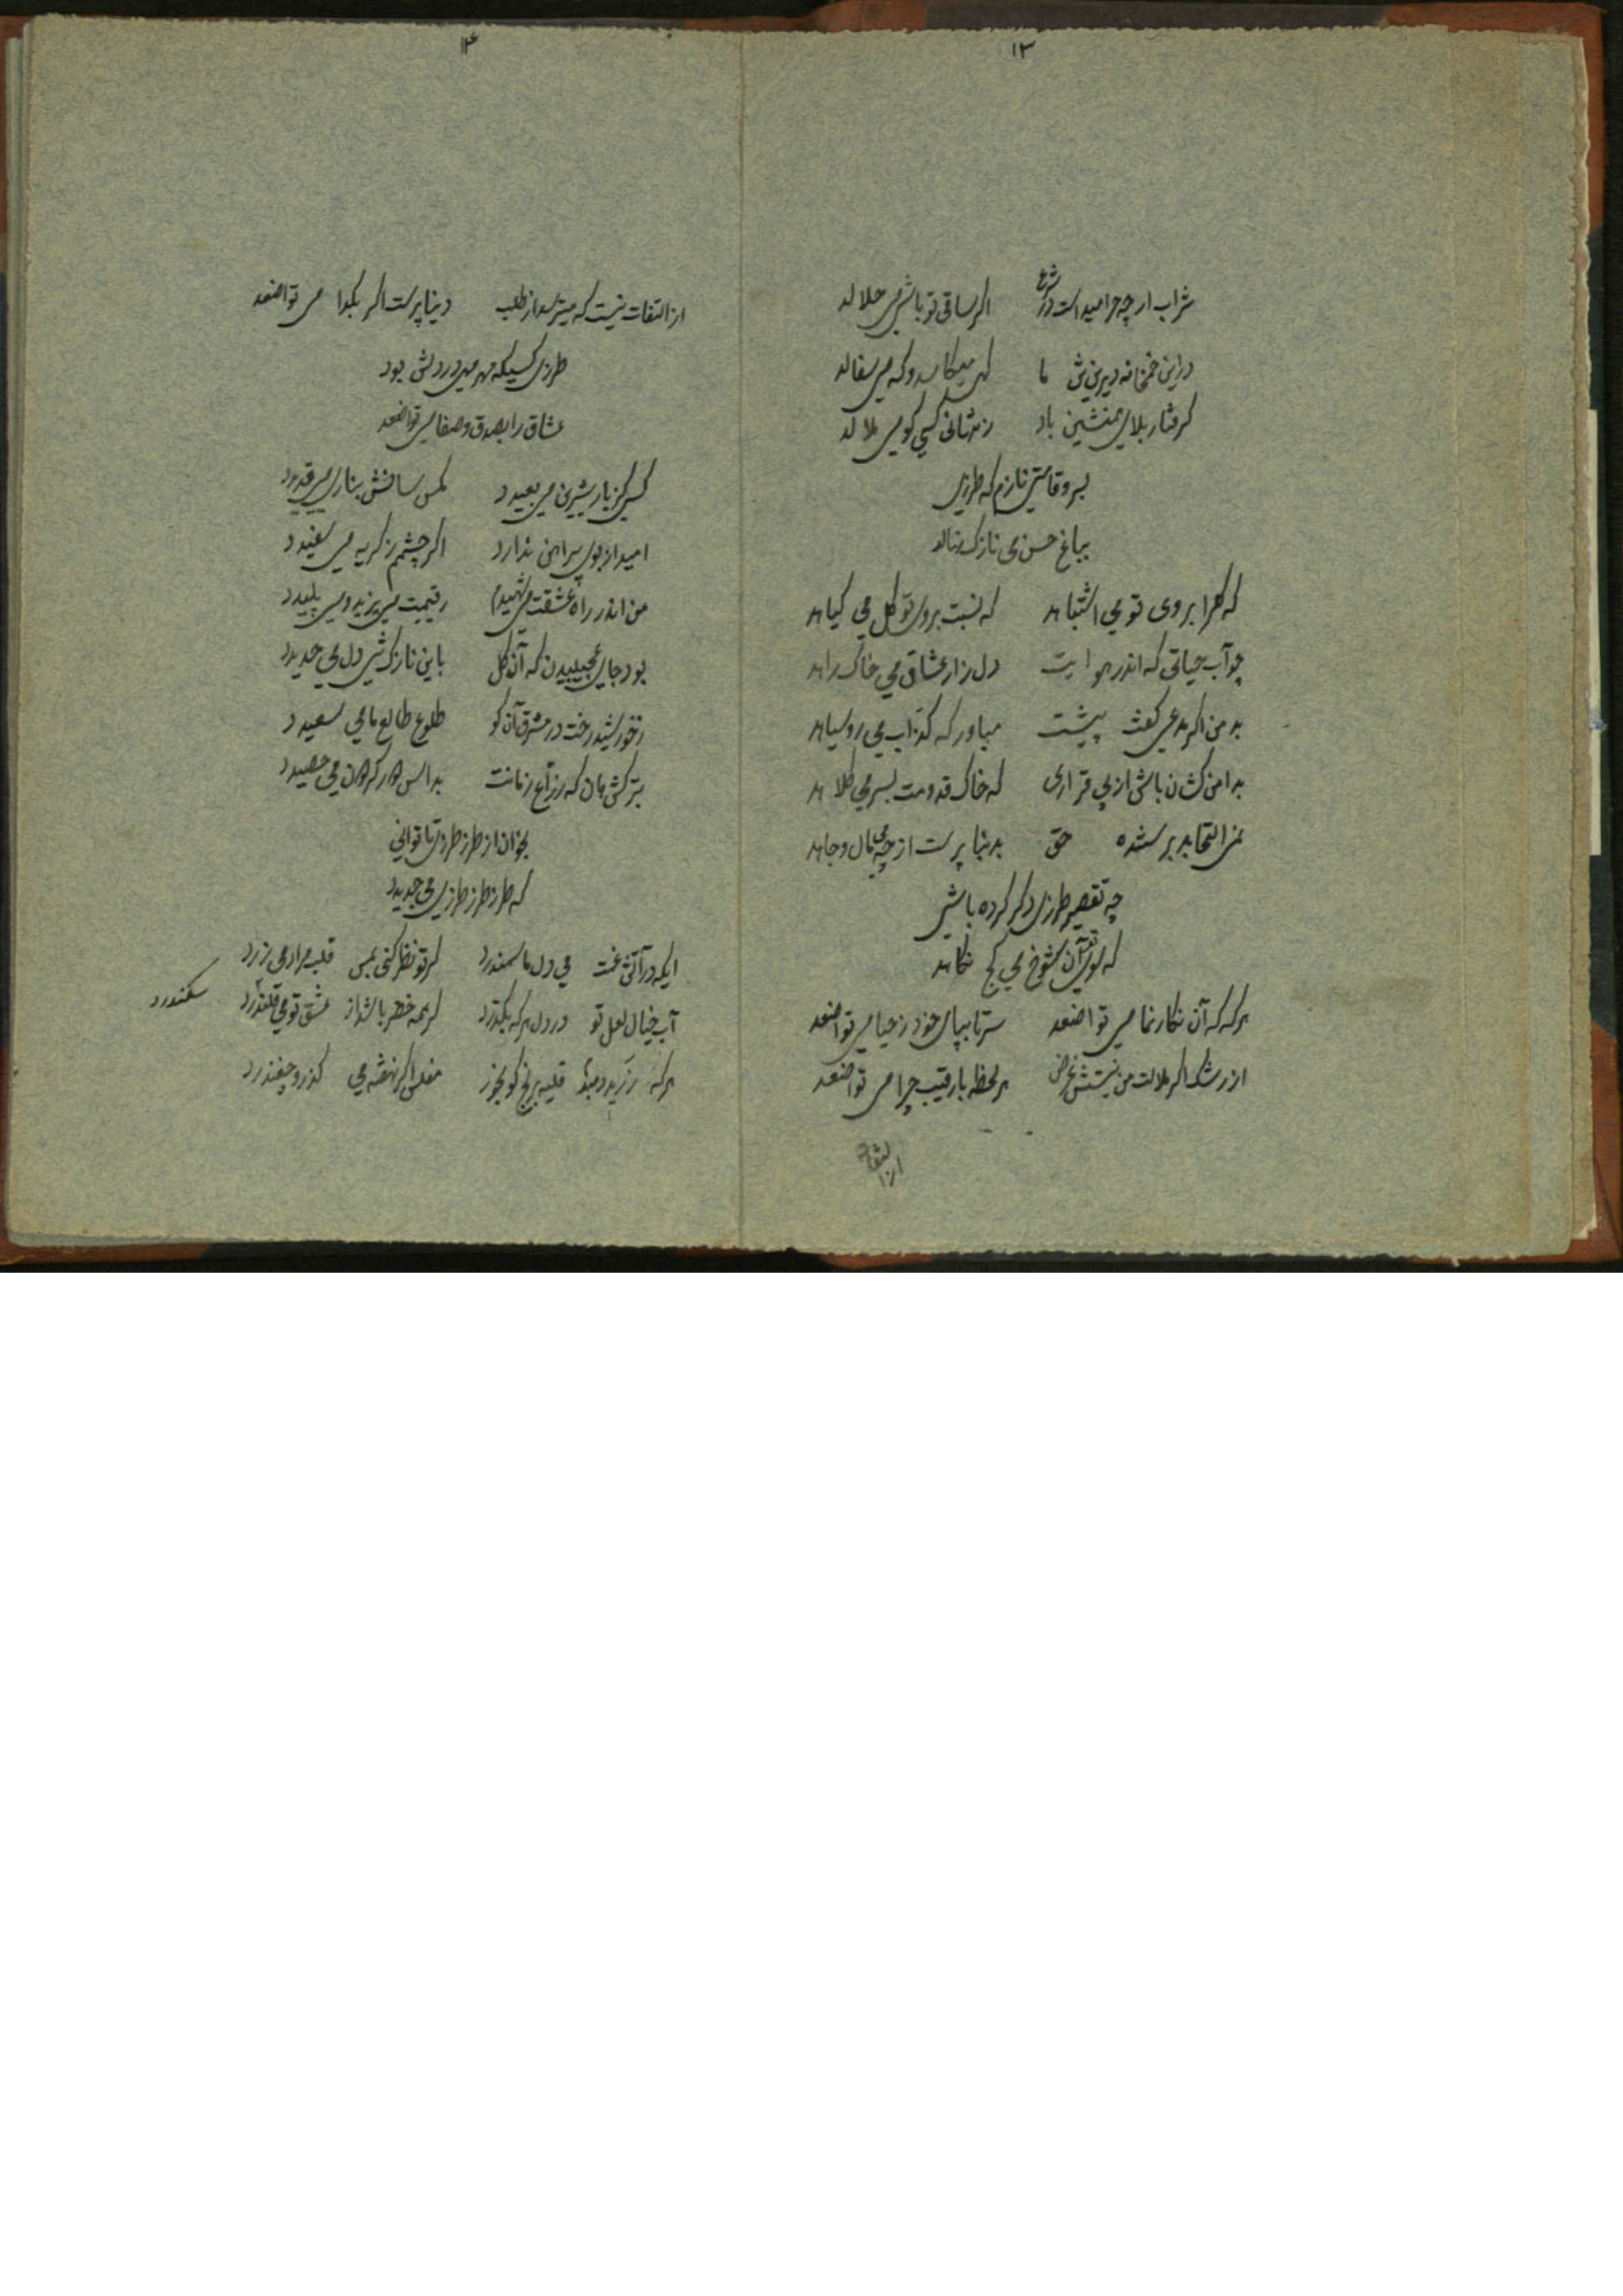 ۱۳
شراب ارچه حرامیداست در شرع اگر ساقی تو باشی می حلالد
دراین خمخانه دیرینش ما گهی میکاسد و که می سفالد
گرفتار بلای همنشین باد زمستانی کسی کو می ملالد
بسرو قامتی نازم که طرزی
بباغ حسن می نازک نهالد
که گلرا بروی تو می اشتباهد که نسبت بروی تو گل می گیاهد
چو آب حیاتی که اندر هوایت دل زار عشاق می خاک راهد
بد من اگر مدعی گفت پیشت مباور که کذاب می روسیاهد
بدامن کشان باش از بی قراری که خاک قدومت بسر می کلاهد
نمی التجابد بر سده حق بدنیا پرست از چه می مال و جاهد
چه تقصیر طرزی دگر کرده باشی
که سویش آن شوخ می کج نگاهد
هرکه که آن نگار نما می تواضعد سر تا بپای خود ز حیا می تواضعد
از رشک اگر ملالت من نیستش غرض هر لحظه با رقیب چرا می تواضعد
از التفات
۱۴
از التفات نیست که میترسد از طلب دنیا پرست اگر بگدا می تواضعد
طرزی کسیکه مهر میی در دلش بود
عشاق را بصدق و صفا می تواضعد
کسی کز یار شیرین می بعیدد
امید از بوی پیراهن ندارد اگر چشمم ز گریه می سفیدد
من اندر راه عشقت می شهیدم رقیبت می یزید و می پلیدد
بود جای عجبیدن که آن گل باین نازک تنی دل می حدیدد
ز خورشید رخت در مشرق آن کو طلوع طالع ما می سعیدد
بخوان از طرز طرزی تا توانی
که طرز طرز طرزی می جدیدد
ایکه در آتش غمت می دل ما سمندرد گر تو نظر کنی بمس قلب مراد می زرد
آب خیال لعل تو در دل هر که بگذرد گر همه خضر باشد از عشق تو می قلندرد سکندرد
قلیه برنج گو بخور مفلس اگر نهفته می گذر و چغندرد